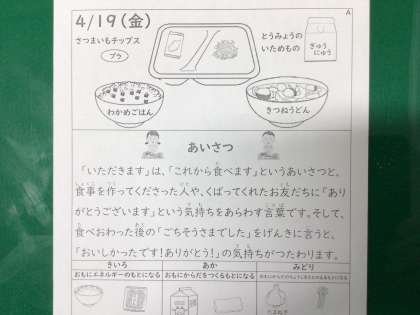 4/19(金)
A
さつまいもチップス
プラ
とうみょうの
いためもの
ぎゅう
にゅう
わかめごはん
きつねうどん
あいさつ
「いただきます」は、「これから食べます」というあいさつと、
食事を作ってくださった人や、くばってくれたお友だちに「あり
がとうございます」という気持ちをあらわす言葉です。そして、
食べおわった後の「ごちそうさまでした」をげんきに言うと、
「おいしかったです!ありがとう!」の気持ちがつたわります。
きいろ
あか
みどり
おもにエネルギーのもとになる
おもにからだをつくるもとになる